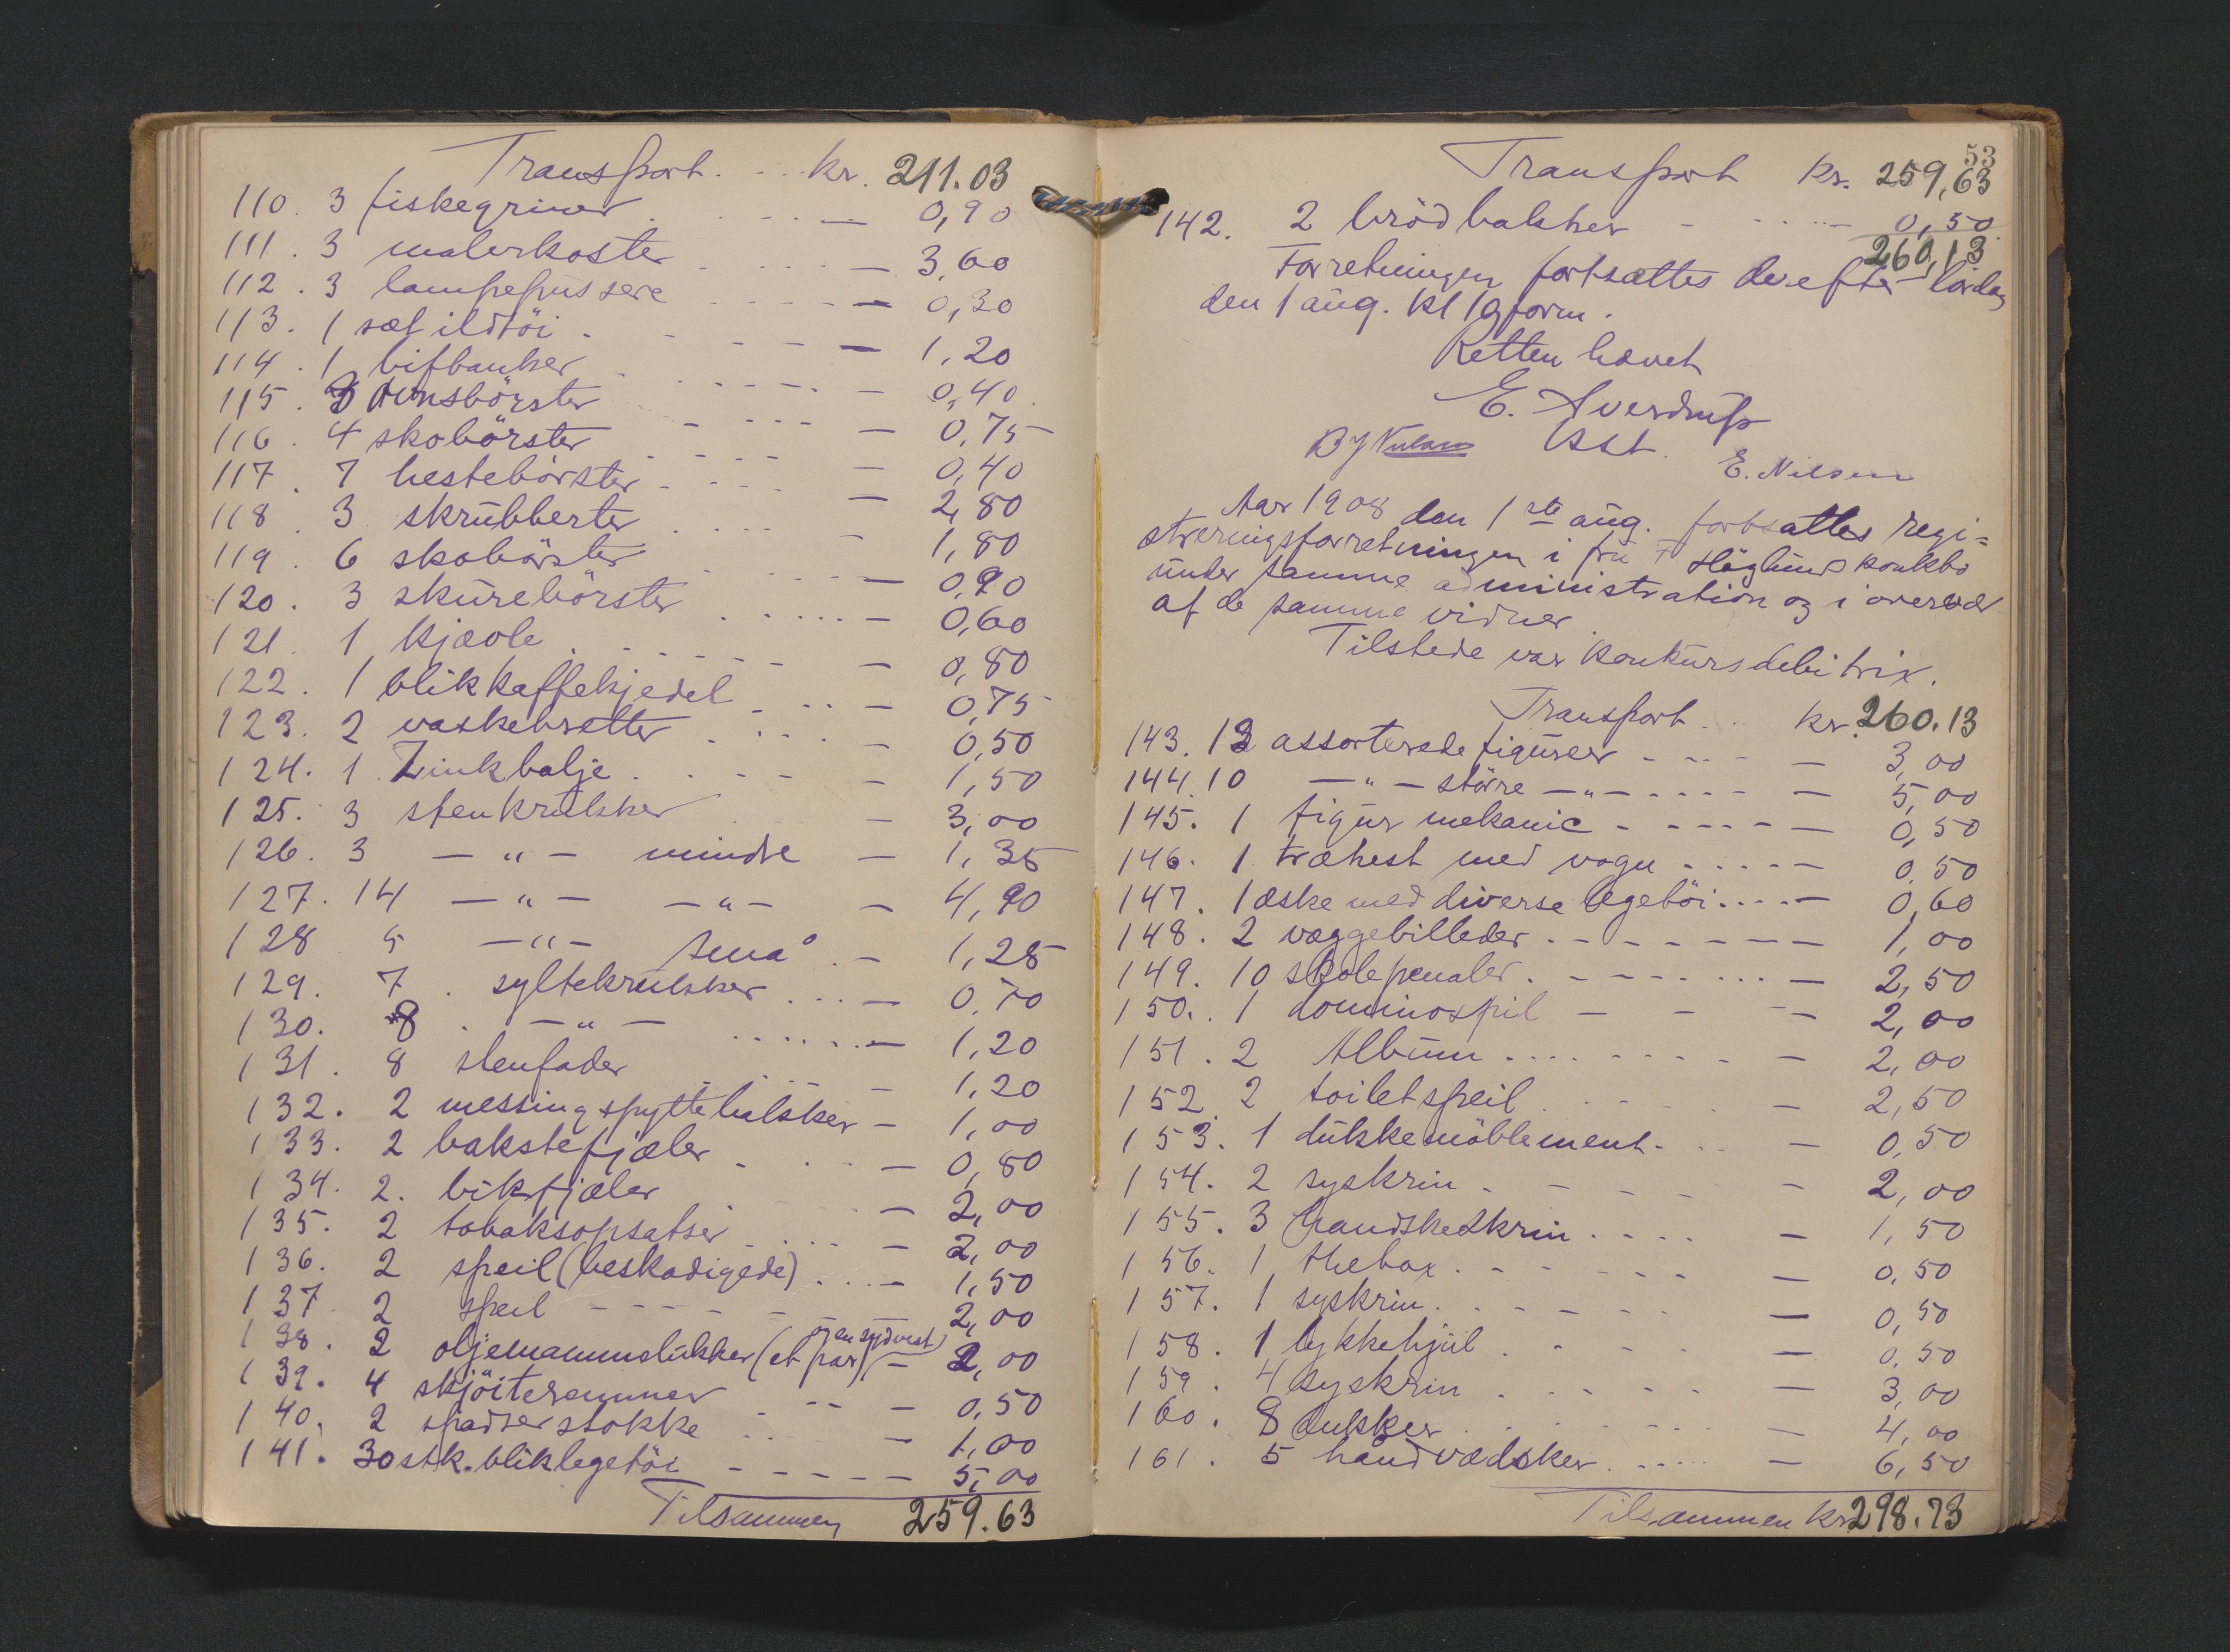 Transport. . . kr. 211.03
110. 3 fiskegriner . . . . — 0,90
111. 3 malerkoster . . . . — 3,60
112. 3 lampepussere . . . . — 0,30
113. 1 sæt ildtöi . . . . — 1,20
114. 1 bifbanker . . . . — 0,40
115. 3 ovnsbörster . . . . — 0,75
116. 4 skobörster . . . . — 0,40
117. 7 hestebörster . . . . — 2,80
118. 3 skrubberter . . . . — 1,80
119. 6 skobörster . . . . — 0,90
120. 3 skurebörster . . . . — 0,60
121. 1 kjaole . . . . — 0,80
122. 1 blikkaffekjedel . . . — 0,75
123. 2 vaskebretter . . . . — 0,50
124. 1 Zinkbalje . . . . — 1,50
125. 3 stenkrukker — 3,00
126. 3 — " — mindre — 1,35
127. 14 — " — — " — — 4,90
128 5 — " — små . — 1,25
129. 7 . syltekrukker . . . — 0,70
130. 8 . — " — . . . . . . — 1,20
131. 8 stenfader . . . . — 1,20
132. 2 messing spyttebakker — 1,00
133. 2 bakstefjæler . . . — 0,80
134. 2. bikfjæler — 2,00
135. 2 tobaksopsatser . . . — 2,00
136. 2 speil (beskadigede) . . . — 1,50
137. 2 speil - - - - - — 2,00
og en sydvest)
138. 2 oljemannsdukker (et par) — 2,00
139. 4 skjöiteremmer . . . — 0,50
140. 2 spadserstokke . . . — 1,00
141. 30 stk. bliklegetöi - - - - — 5,00
Tilsammen 259.63
53
Transport kr. 259,63
142. 2 brödbakker - . . . — 0,50
260,13
Forretningen fortsættes derefter lördag
den 1 aug. kl 10 form.
Retten hævet
E. Sverdrup
Ast.
E. Nilsen
Aar 1908 den 1ste aug. fortsattes regi=
streringsforretningen i fru F Höglunds konkbo
under samme administration og i overvær
af de samme vidner
Tilstede var konkursdebitrix.
Transport . . kr. 260.13
143. 12 assorterede figurer - . . - — 3,00
144. 10 — " — större — " — . . . . — 5,00
145. 1 figur mekanic - - - - — 0,50
146. 1 træhest med vogn . . . . — 0,50
147. 1 æske med diverse legetöi . . . . — 0,60
148. 2 væggebilleder . - - - - — 1,00
149. 10 skolepenaler . - - . . . — 2,50
150. 1 dominospil — - — 2,00
151. 2 Album . . . . . . — 2,00
152. 2 toiletspeil . . . . — 2,50
153. 1 dukkemöblement . . — 0,50
154. 2 syskrin . - - - — 2,00
155. 3 handskeskrin . . . . — 1,50
156. 1 thebox . - - - - — 0,50
157. 1 syskrin . - - . . — 0,50
158. 1 lykkehjul . . . . — 0,50
159. 4 syskrin . . . . . — 3,00
160. 8 dukker . . . . . — 4,00
161. 5 håndvædsker . . . . — 6,50
Tilsammen kr. 298.73